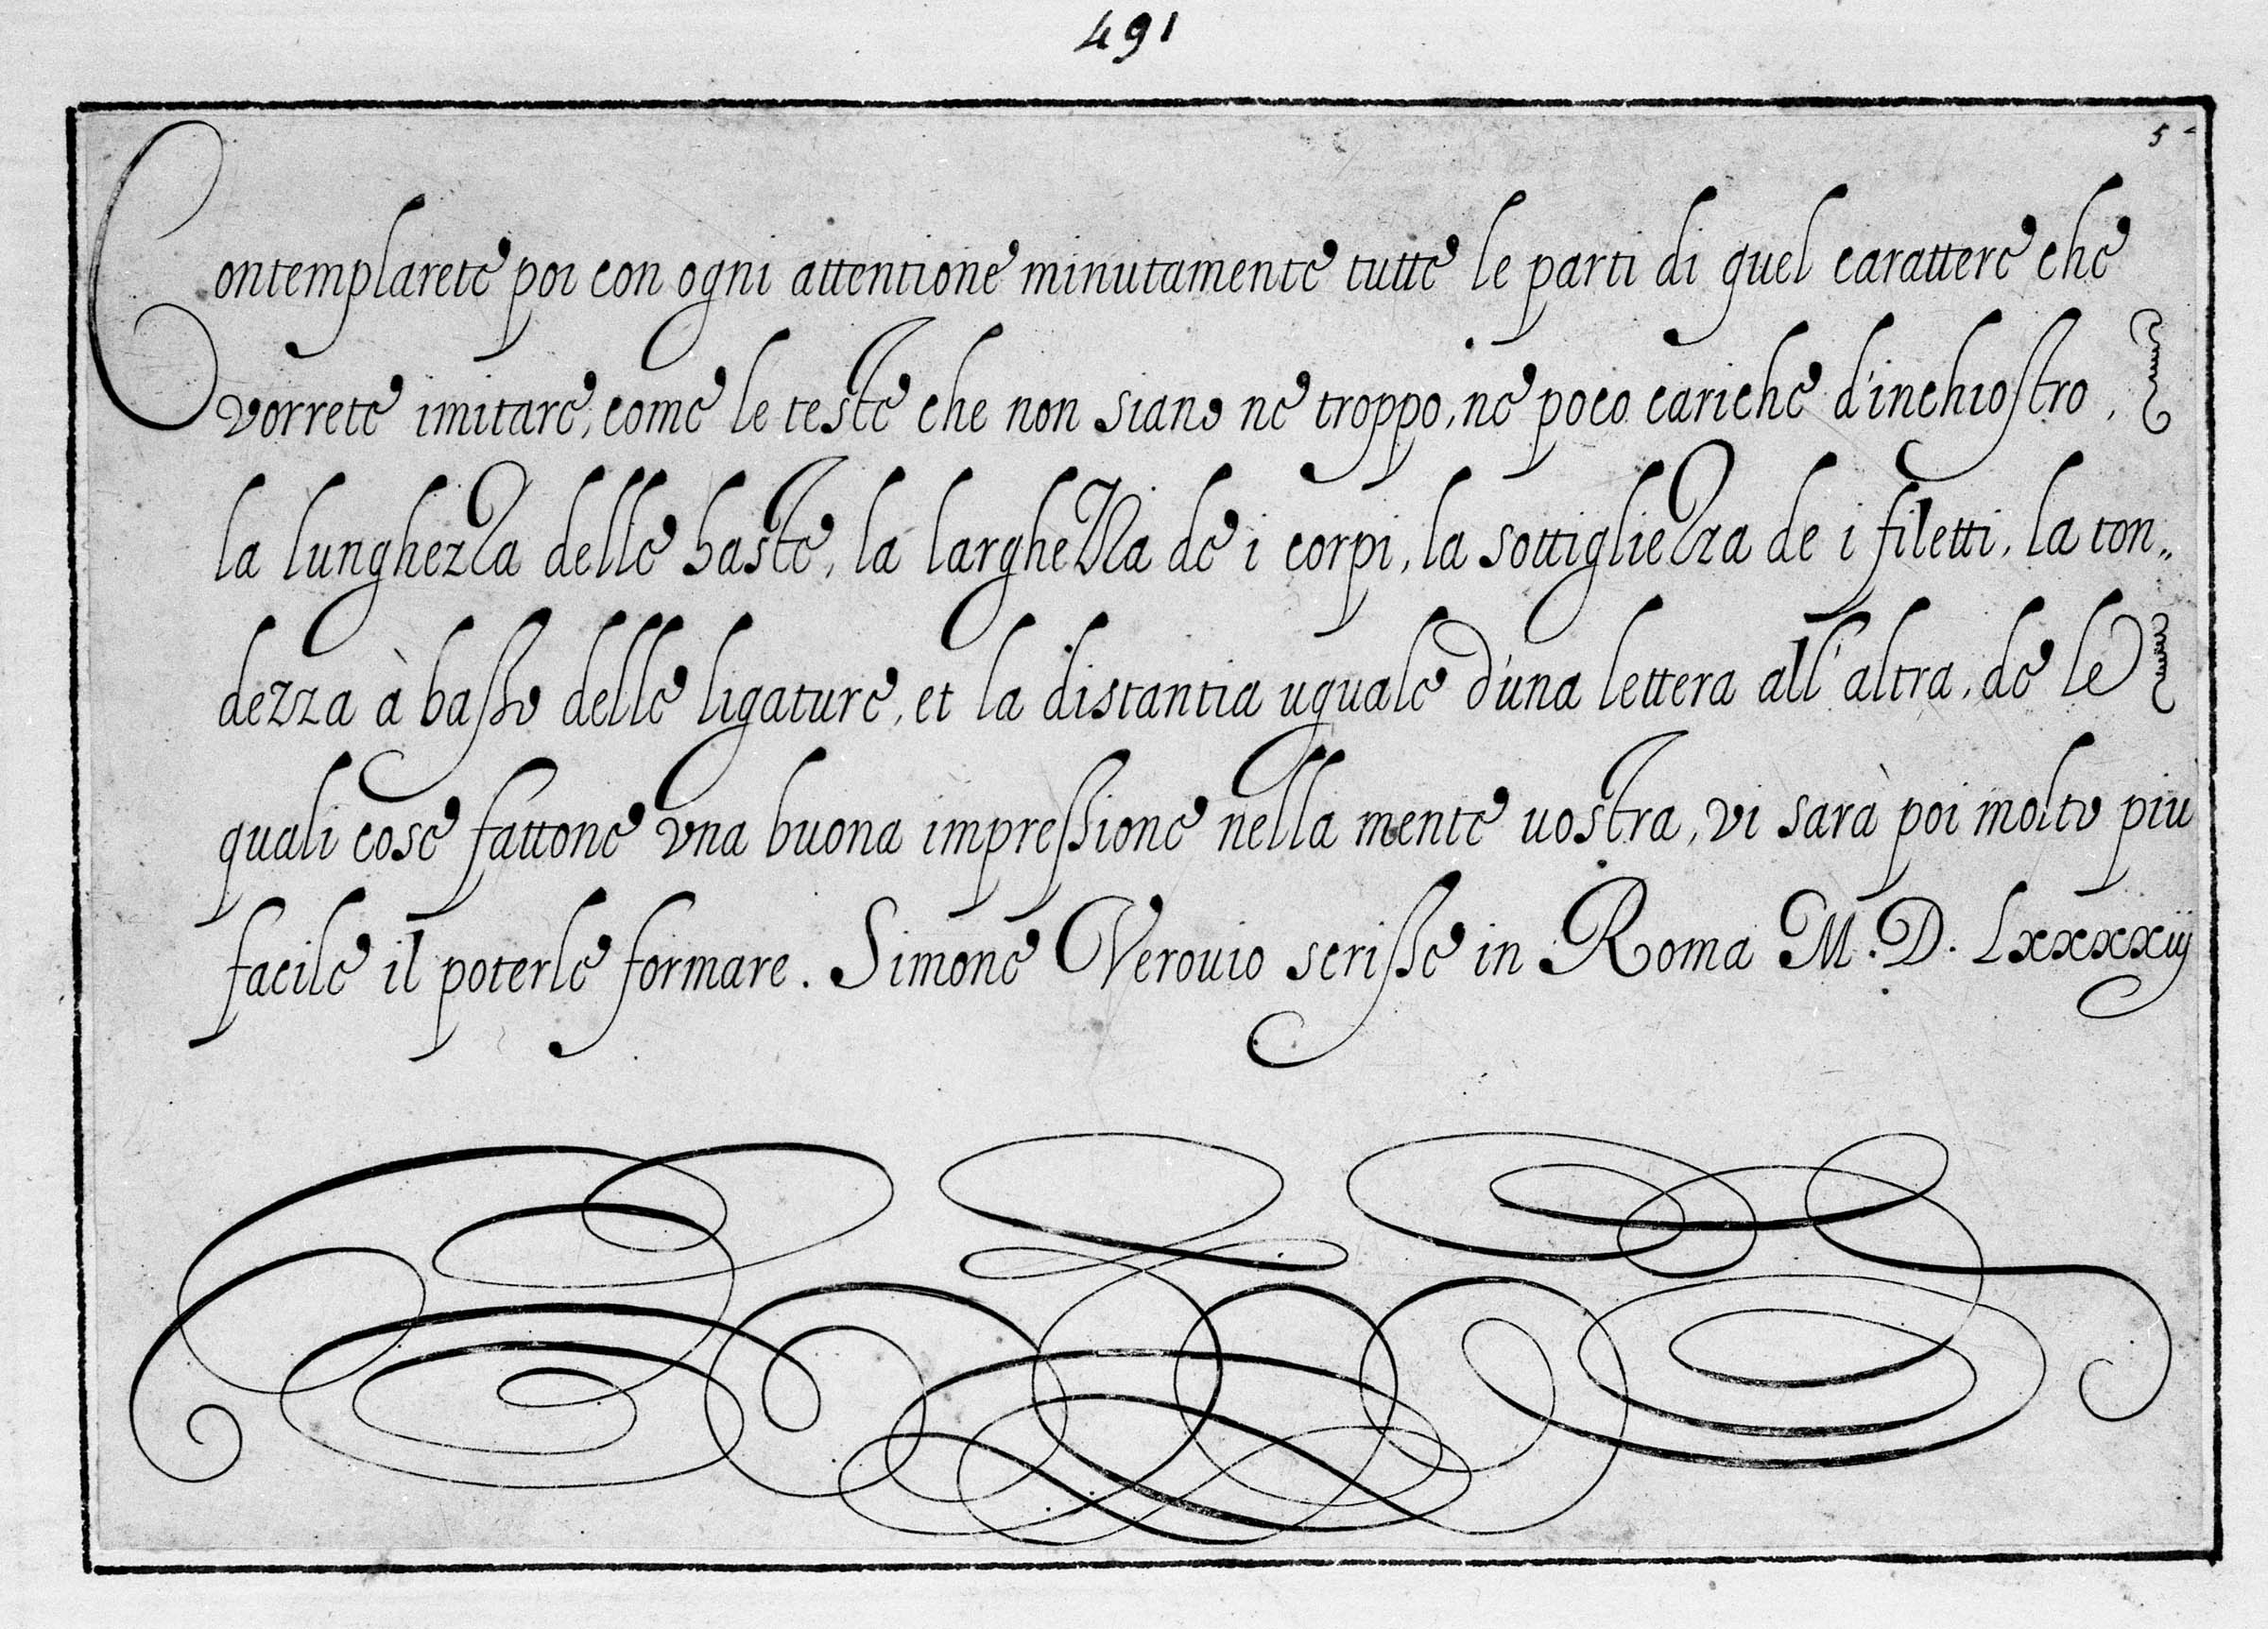 491
5
Contemplarete poi con ogni attentione minutamente tutte le parti di quel carattere che
vorrete imitare, come le teste che non siano ne troppo, ne poco cariche d'inchiostro,
la lunghezza delle haste, la larghezza de i corpi, la sottigliezza de i filetti, la ton„
dezza à basso delle ligature, et la distantia uguale d'una lettera all'altra, de le
quali cose fattone vna buona impressione nella mente uostra, vi sarà poi molto piu
facile il poterle formare. Simone Verouio scrisse in Roma M. D. Lxxxxiij